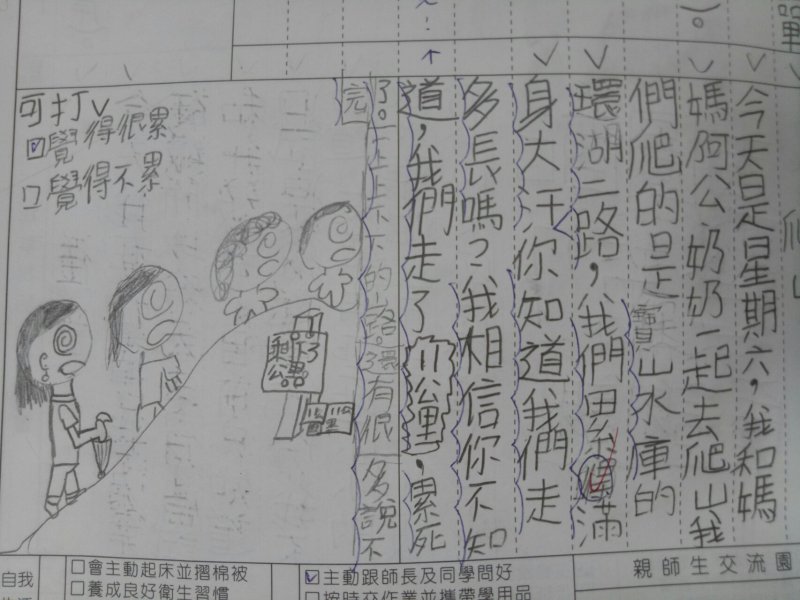 今天是星期六，我和媽
媽阿公、奶奶一起去爬山我
們爬的是寶山水庫的
環湖二路，我們累得滿
身大汗你知道我們走
多長嗎？我相信你不知
道，我們走了11公里，累死
了。上上下下的山路還有很多說不
完
可打✓
☑覺得很累
□覺得不累
剩下了
公里
11公里
爬山
親師生交流園
☑主動跟師長及同學問好
□按時交作業並攜帶學用品
□會主動起床並摺棉被
□養成良好衛生習慣
自我